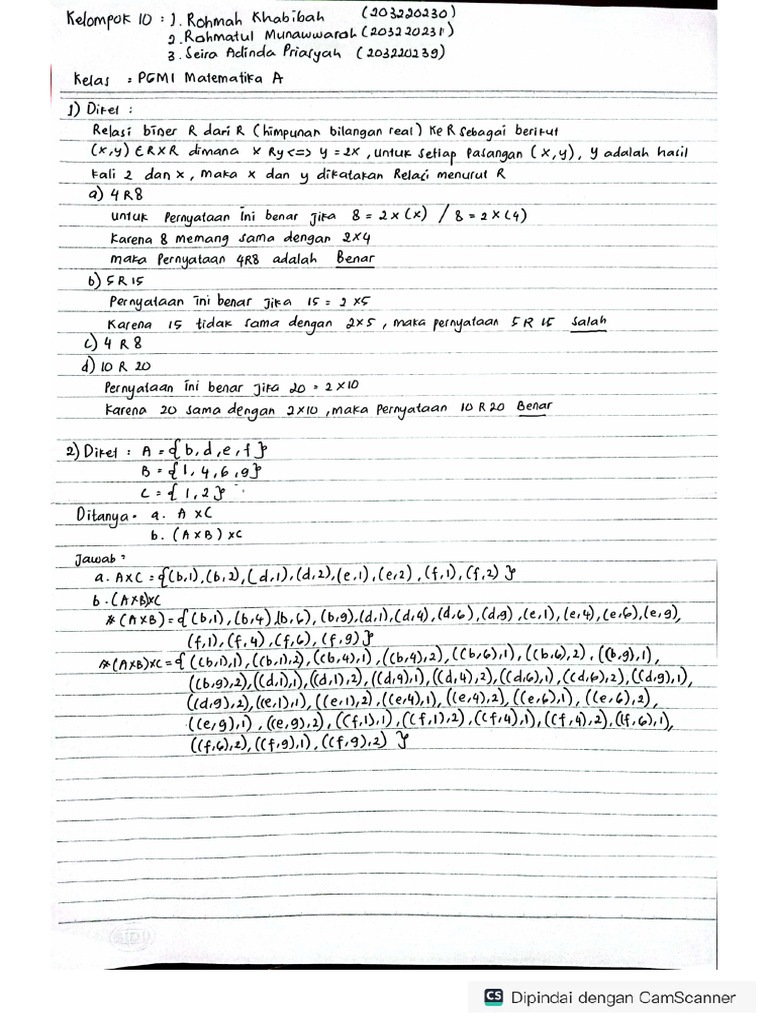 Kelompok 10 : 1. Rohmah Khabibah (203220230)
2. Rahmatul Munawwarah (203220231)
3. Seira Adinda Priasyah (203220239)
Kelas : PGMI Matematika A
1) Diket :
Relasi biner R dari R (himpunan bilangan real) ke R sebagai berikut
(x,y) ∈ R×R dimana x Ry <=> y = 2x , untuk setiap pasangan (x,y), y adalah hasil
kali 2 dan x , maka x dan y dikatakan Relasi menurut R
a) 4 R 8
untuk Pernyataan ini benar jika 8 = 2 × (x) / 8 = 2 × (4)
Karena 8 memang sama dengan 2×4
maka Pernyataan 4R8 adalah Benar
b) 5 R 15
Pernyataan ini benar jika 15 = 2 ×5
Karena 15 tidak sama dengan 2×5 , maka pernyataan 5 R 15 Salah
c) 4 R 8
d) 10 R 20
Pernyataan ini benar jika 20 = 2×10
Karena 20 sama dengan 2×10 , maka Pernyataan 10 R 20 Benar
2) Diket : A = {b, d, e, f}
B = {1, 4, 6, 9}
C = {1, 2}
Ditanya . a. A ×C
b. (A×B) ×C
Jawab :
a. A×C = {(b,1),(b,2),(d,1),(d,2),(e,1),(e,2),(f,1),(f,2)}
b. (A×B)×C
* (A×B) = {(b,1),(b,4),(b,6),(b,9),(d,1),(d,4),(d,6),(d,9),(e,1),(e,4),(e,6),(e,9),
(f,1),(f,4),(f,6),(f,9)}
* (A×B)×C = {((b,1),1),((b,1),2),((b,4),1),((b,4),2),((b,6),1),((b,6),2),((b,9),1),
((b,9),2),((d,1),1),((d,1),2),((d,4),1),((d,4),2),((d,6),1),((d,6),2),((d,9),1),
((d,9),2),((e,1),1),((e,1),2),((e,4),1),((e,4),2),((e,6),1),((e,6),2),
((e,9),1),((e,9),2),((f,1),1),((f,1),2),((f,4),1),((f,4),2),((f,6),1),
((f,6),2),((f,9),1),((f,9),2)}
CS Dipindai dengan CamScanner